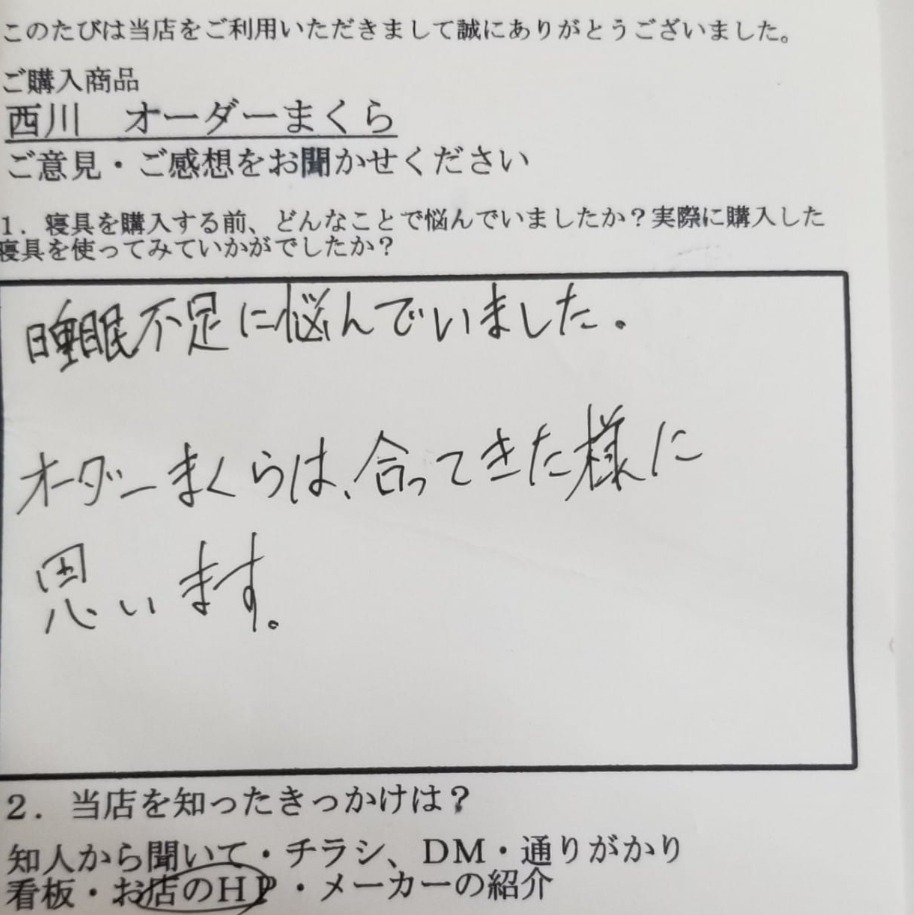 このたびは当店をご利用いただきまして誠にありがとうございました。
ご購入商品
西川　オーダーまくら
ご意見・ご感想をお聞かせください
1．寝具を購入する前、どんなことで悩んでいましたか？実際に購入した
寝具を使ってみていかがでしたか？
睡眠不足に悩んでいました。
オーダーまくらは、合ってきた様に
思います。
2．当店を知ったきっかけは？
知人から聞いて・チラシ、DM・通りがかり
看板・お店のHP・メーカーの紹介